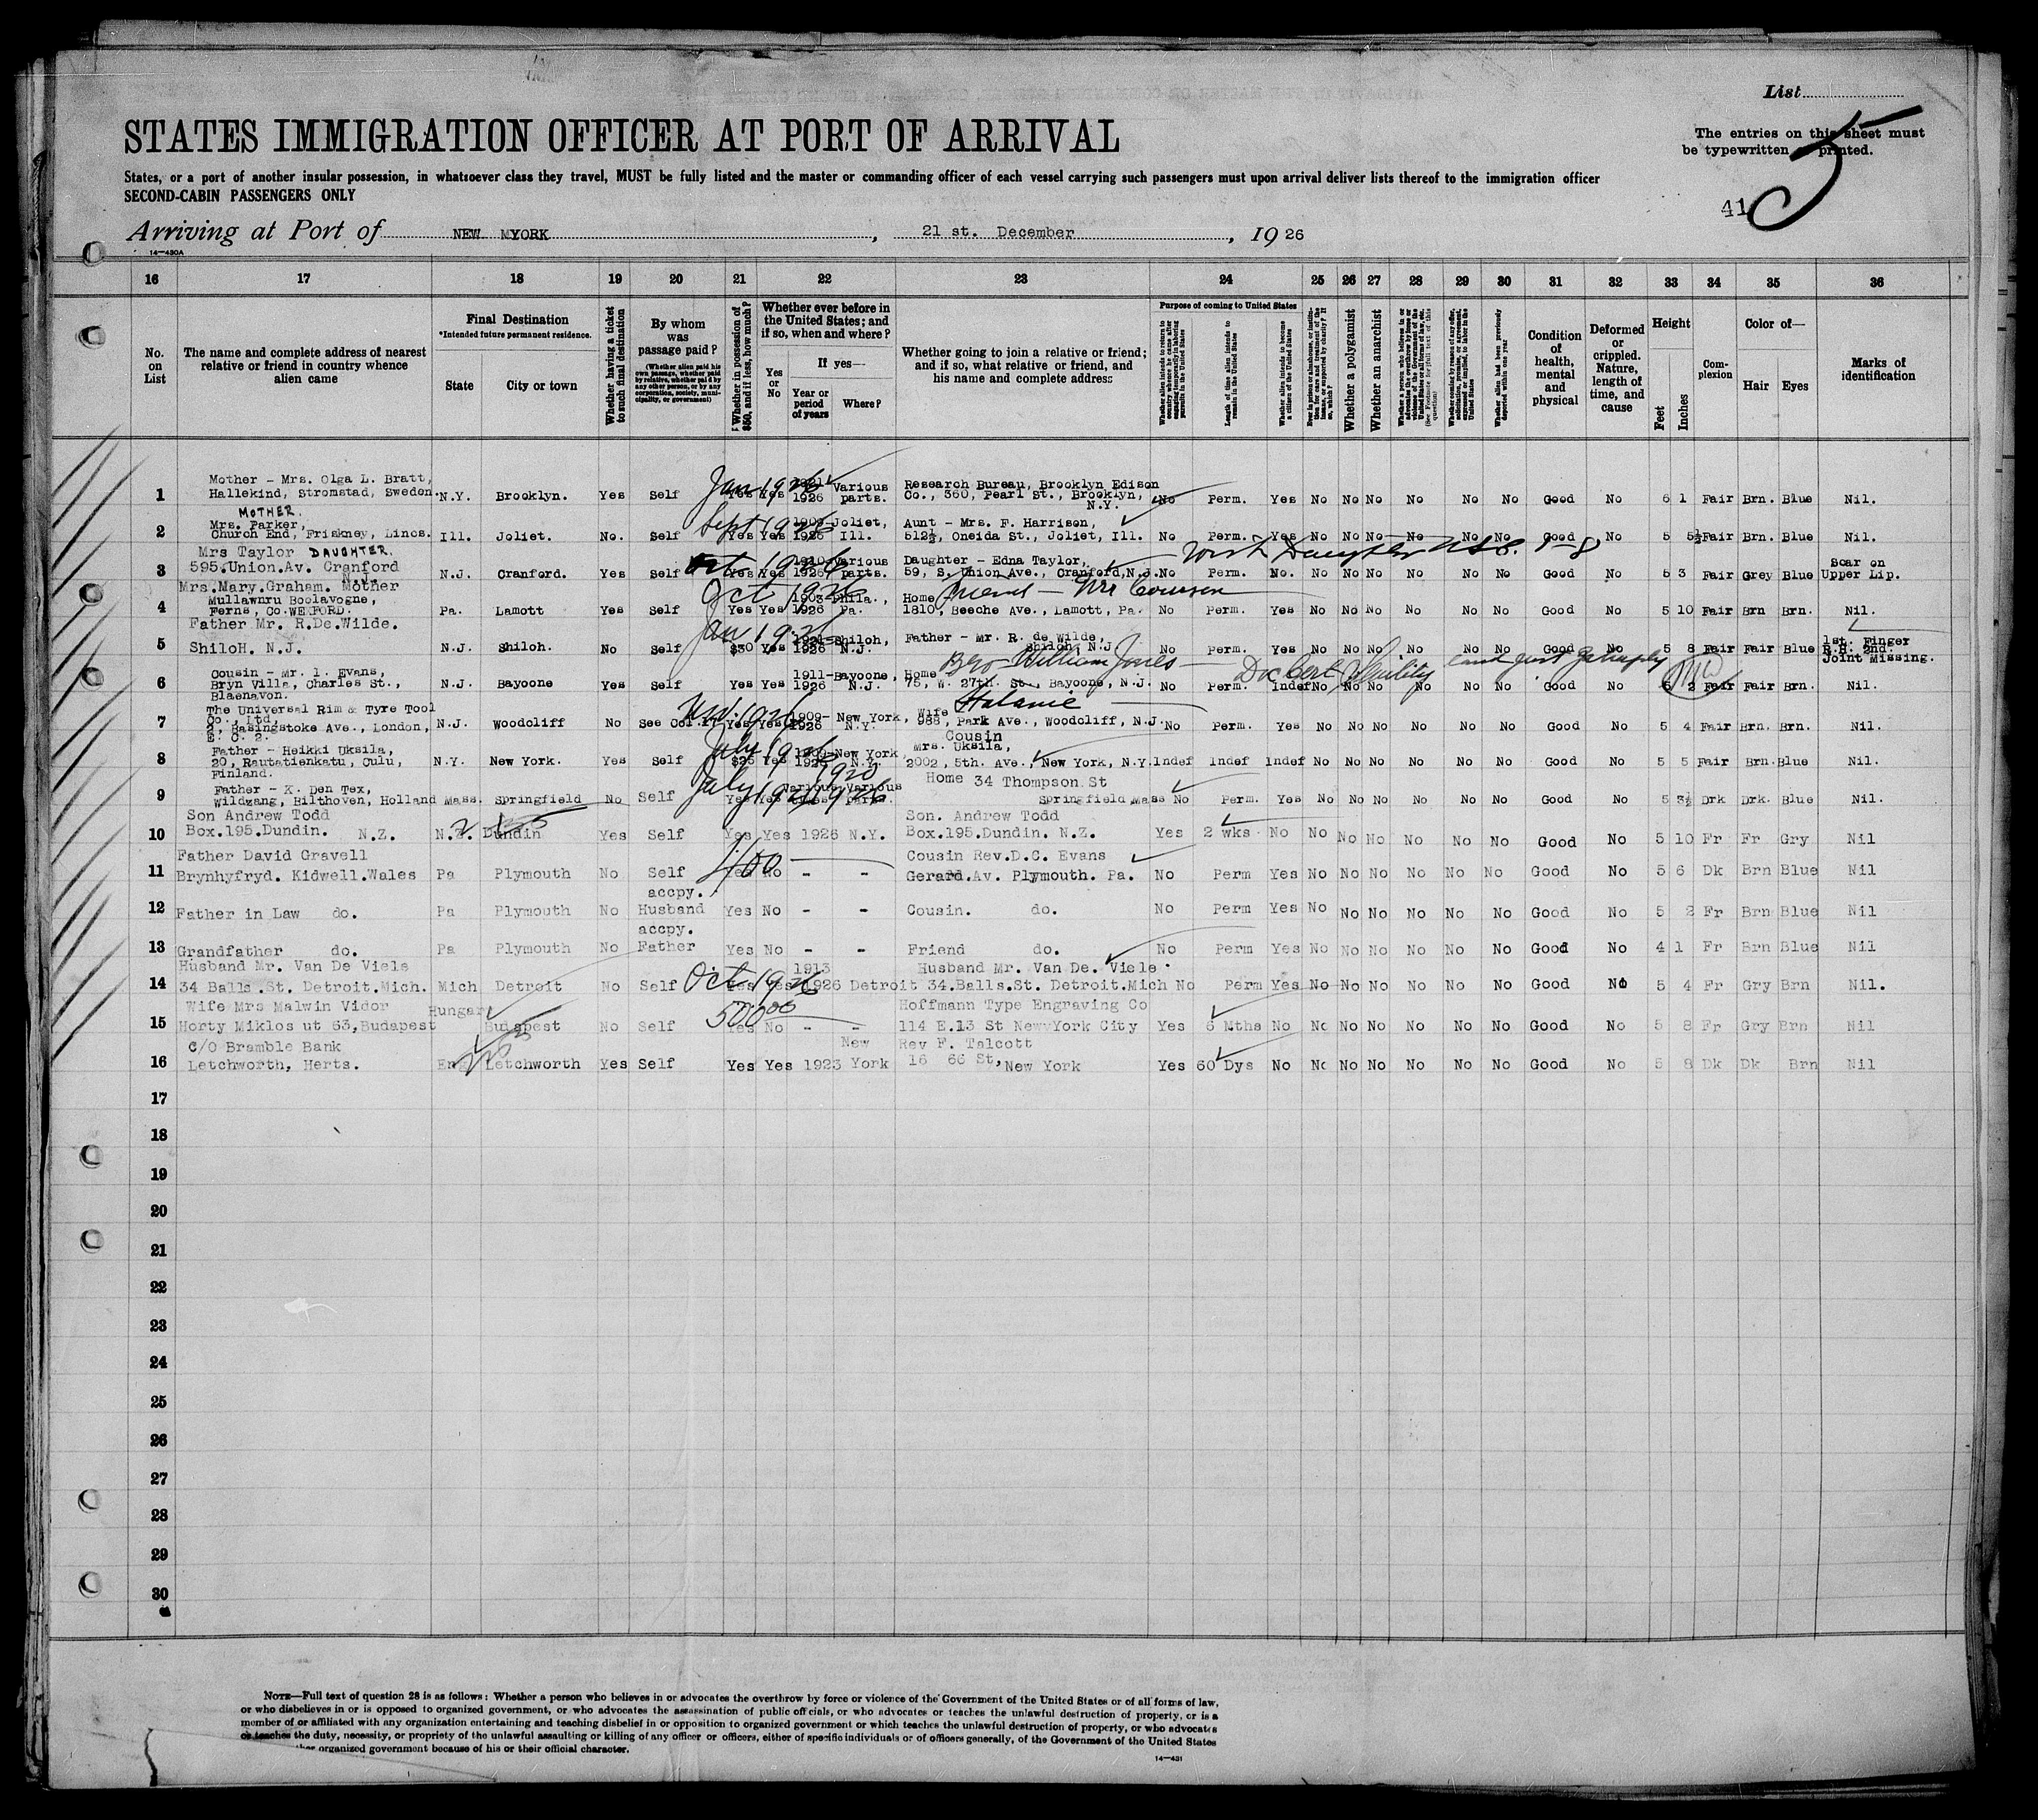 List
STATES IMMIGRATION OFFICER AT PORT OF ARRIVAL
The entries on this sheet must
be typewritten or printed.
5
41
States, or a port of another insular possession, in whatsoever class they travel, MUST be fully listed and the master or commanding officer of each vessel carrying such passengers must upon arrival deliver lists thereof to the immigration officer
SECOND-CABIN PASSENGERS ONLY
Arriving at Port of NEW MYORK, 21 st. December, 19 26
14—430A
16 17 18 19 20 21 22 23 24 25 26 27 28 29 30 31 32 33 34 35 36
No. on List
The name and complete address of nearest relative or friend in country whence alien came
Final Destination
*Intended future permanent residence.
State
City or town
Whether having a ticket to such final destination
By whom was passage paid?
(Whether alien paid his own passage, whether paid by relative, whether paid by any other person, or by any corporation, society, municipality, or government)
Whether in possession of $50, and if less, how much?
Whether ever before in the United States; and if so, when and where?
Yes or No
If yes—
Year or period of years
Where?
Whether going to join a relative or friend; and if so, what relative or friend, and his name and complete address
Purpose of coming to United States
Whether alien intends to return to country whence he came after engaging temporarily in laboring pursuits in the United States
Length of time alien intends to remain in the United States
Whether alien intends to become a citizen of the United States
Whether a polygamist
Whether an anarchist
Whether alien had been previously deported within one year
Condition of health, mental and physical
Deformed or crippled. Nature, length of time, and cause
Height
Feet
Inches
Complexion
Color of—
Hair
Eyes
Marks of identification
Mother - Mrs. Olga L. Bratt,
1 Hallekind, Stromstad, Sweden. N.Y. Brooklyn. Yes Self Yes Yes 1926 Various parts. Research Bureau, Brooklyn Edison Co., 360, Pearl St., Brooklyn, N.Y. No Perm. Yes No No No No No No Good No 6 1 Fair Brn. Blue Nil.
Jan 1926
MOTHER.
2 Mrs. Parker, Church End, Friskney, Lincs. Ill. Joliet. No. Self Yes Yes 1909- 1926 Joliet, Ill. Aunt - Mrs. F. Harrison, 512½, Oneida St., Joliet, Ill. No Perm. Yes No No No No No No Good No 5 5½ Fair Brn. Blue Nil.
Sept 1926
Mrs Taylor DAUGHTER.
3 595.Union.Av. Cranford N.J. N.J. Cranford. Yes Self Yes Yes 1910 1926 Various parts. Daughter - Edna Taylor, 59, S. Union Ave., Cranford, N.J. No Perm. No. No No No No No No Good No 5 3 Fair Grey Blue Scar on Upper Lip.
Oct 1926
Mrs.Mary.Graham. Mother
4 Mullawnru Boolavogne, Ferns, Co.WEXFORD. Pa. Lamott Yes Self Yes Yes 1903- 1926 Phila., Pa. Home 1810, Beeche Ave., Lamott, Pa. No Perm. Yes No No No No No No Good No 5 10 Fair Brn Brn. Nil.
Oct 1926
Father Mr. R.De.Wilde.
5 ShiloH. N.J. N.J. Shiloh. No Self $30 Yes 1921- 1926 Shiloh, N.J. Father - Mr. R. de Wilde, Shiloh, N.J. No Perm. Yes No No No No No No Good No 5 8 Fair Fair Blue 1st. Finger R.H. 2nd. Joint Missing.
Cousin - Mr. l. Evans,
6 Bryn Villa, Charles St., Blaenavon. N.J. Bayoone Yes Self Yes Yes 1911- 1926 Bayoone, N.J. Home 75, W. 27th. St., Bayoone, N.J. No Perm. Indef No No No No No No Good No 5 2 Fair Fair Brn. Nil.
Bro - William Jones
The Universal Rim & Tyre Tool Co., Ltd,
7 2, Basingstoke Ave., London, E. C. 2. N.J. Woodcliff No See Col.17 Yes Yes 1909- 1926 New York, N.Y. Wife 988, Park Ave., Woodcliff, N.J. No Perm. Yes No No No No No No Good No 5 4 Fair Brn. Brn. Nil.
Father - Heikki Uksila,
8 20, Rautatienkatu, Oulu, Finland. N.Y. New York. Yes Self $25 Yes 1926 New York N.Y. Cousin Mrs. Uksila, 2002, 5th. Ave. New York, N.Y. Indef Indef Indef No No No No No No Good No 5 5 Fair Brn. Blue Nil.
July 1926
Father - K. Den Tex,
9 Wildzang, Bilthoven, Holland Mass. Springfield No Self Yes Yes Various parts. Home 34 Thompson St Springfield Mass No Perm. Yes No No No No No No Good No 5 3½ Drk Drk. Blue Nil.
July 1920 1926
Son Andrew Todd
10 Box.195.Dundin. N.Z. N.Z. Dundin Yes Self Yes Yes 1926 N.Y. Son. Andrew Todd Box.195.Dundin. N.Z. Yes 2 wks No No No No No No No Good No 5 10 Fr Fr Gry Nil
Father David Gravell
11 Brynhyfryd. Kidwell.Wales Pa Plymouth No Self Yes No - - Cousin Rev.D.C. Evans Gerard.Av. Plymouth. Pa. No Perm Yes No No No No No No Good No 5 6 Dk Brn Blue Nil
12 Father in Law do. Pa Plymouth No accpy. Husband Yes No - - Cousin. do. No Perm Yes No No No No No No Good No 5 2 Fr Brn Blue Nil
13 Grandfather do. Pa Plymouth No accpy. Father Yes No - - Friend do. No Perm Yes No No No No No No Good No 4 1 Fr Brn Blue Nil
Husband Mr. Van De Viele
14 34 Balls.St. Detroit.Mich. Mich Detroit No Self Yes Yes 1913 1926 Detroit Husband Mr. Van De. Viele 34.Balls.St. Detroit.Mich No Perm Yes No No No No No No Good No 5 4 Fr Gry Brn Nil.
Oct 1926
Wife Mrs Malwin Vidor
15 Horty Miklos ut 63,Budapest Hungary Budapest No Self Yes No - - Hoffmann Type Engraving Co 114 E.13 St New York City Yes 6 Mths No No No No No No No Good No 5 8 Fr Gry Brn Nil
500 00
C/O Bramble Bank
16 Letchworth, Herts. Eng Letchworth Yes Self Yes Yes 1923 New York Rev F. Talcott 16 66 St, New York Yes 60 Dys No No No No No No No Good No 5 8 Dk Dk Brn Nil
17
18
19
20
21
22
23
24
25
26
27
28
29
30
NOTE—Full text of question 28 is as follows: Whether a person who believes in or advocates the overthrow by force or violence of the Government of the United States or of all forms of law,
or who disbelieves in or is opposed to organized government, or who advocates the assassination of public officials, or who advocates or teaches the unlawful destruction of property, or is a
member of or affiliated with any organization entertaining and teaching disbelief in or opposition to organized government or which teaches the unlawful destruction of property, or who advocates
or teaches the duty, necessity, or propriety of the unlawful assaulting or killing of any officer or officers, either of specific individuals or of officers generally, of the Government of the United States
organized government because of his or their official character.
14—431